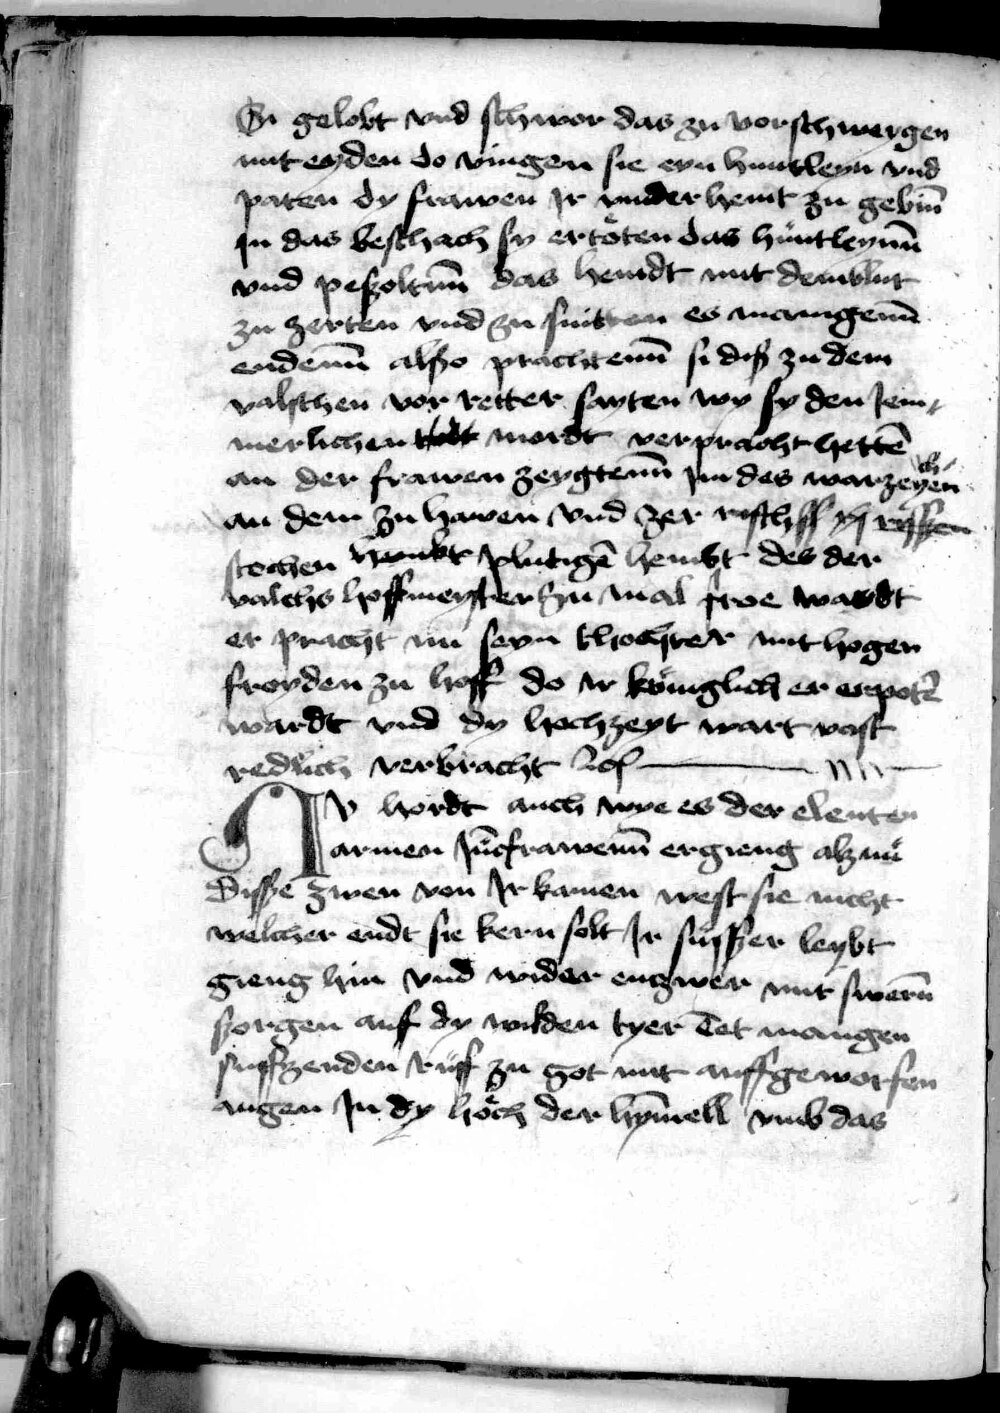 Si gelobt vnd schwor das zu vorschweygen
mit eyden do vingen sie eyn huntleyn vnd
paten dy frawen Jr vnderhemt zu gebn̄
Jn das beschach sy ertöten das hüntleynn̄
vnd peßoltnn̄ das hemdt mit demblut
zu zerten vnd zu snitten es manigenn̄
endenn̄ alßo prachtenn̄ si diß zu dem
valschen vor retter sayten wy sy den Jem
merlichen mordt verpracht hettē
an der frawen zeygtenn̄ Jm des warzeychen
an dem zu hawen vnd zer
stochen plutigē hembt des der
valchs hoffmeyster zu mal froe wardt
er pracht nu seyn thochter mit hogen
froyden zu hoff do Jr königlich er erpotē
wardt vnd dy hochzeyt wart vast
redlich verbracht
NV hordt auch wye es der elenten
armen Jūcfrawenn̄ ergieng alzuͤ
Disse zwen von Jr kamen west sie nicht
welcher endt sie kern solt Jr süsser leybt
gieng hin vnd wider enzwer mit swern̄
sorgen auf dy wilden tyer Tet mangen
suffzenden rüff zu got mit auffgeworfen
augen Jn dy höch der hym̄ell vmb das